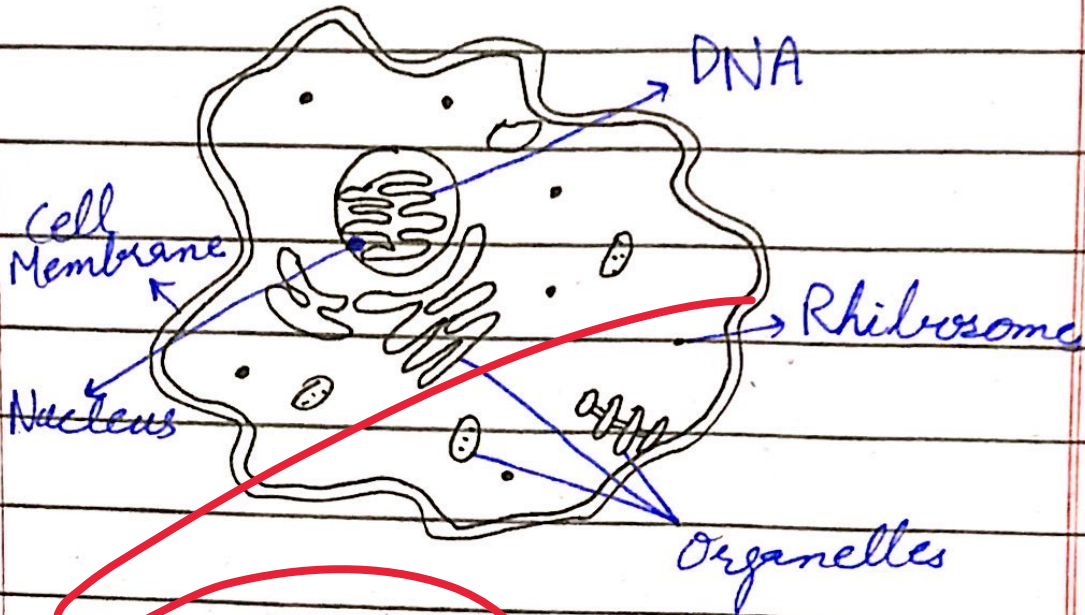 DNA
Cell
Membrane
Rhibrosome
Nucleus
Organelles